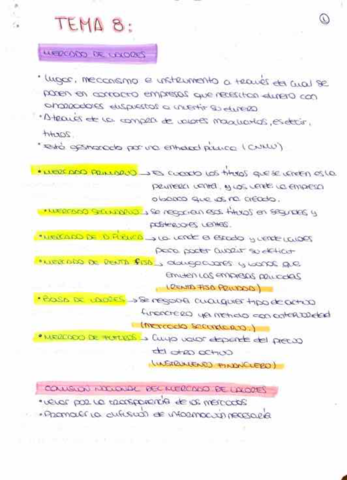 TEMA 8:
1
MERCADO DE VALORES
• Lugar, mecanismo e instrumento a través del cual se
ponen en contacto empresas que necesitan dinero con
ahorradores dispuestos a invertir su dinero
• A través de la compra de valores mobiliarios, es decir,
títulos.
• está gestionado por una entidad pública (CNMV)
• MERCADO PRIMARIO → Es cuando los títulos que se venden es la
primera venta, y los vende la empresa
o banco que los ha creado.
• MERCADO SECUNDARIO → Se negocian esos títulos en segundas y
posteriores ventas.
• MERCADO DE D. PÚBLICA → La vende el estado y vende valores
para poder cubrir su déficit
• MERCADO DE RENTA FIJA → obligaciones y bonos que
emiten las empresas privadas
(RENTA FIJA PRIVADA)
• BOLSA DE VALORES → Se negocia cualquier tipo de activo
financiero ya emitido con anterioridad
(mercado secundario)
• MERCADO DE FUTUROS → Cuyo valor depende del precio
de otro activo
(INSTRUMENTO FINANCIERO)
COMISIÓN NACIONAL DEL MERCADO DE VALORES
• velar por la transparencia de los mercados
• Promover la difusión de información necesaria